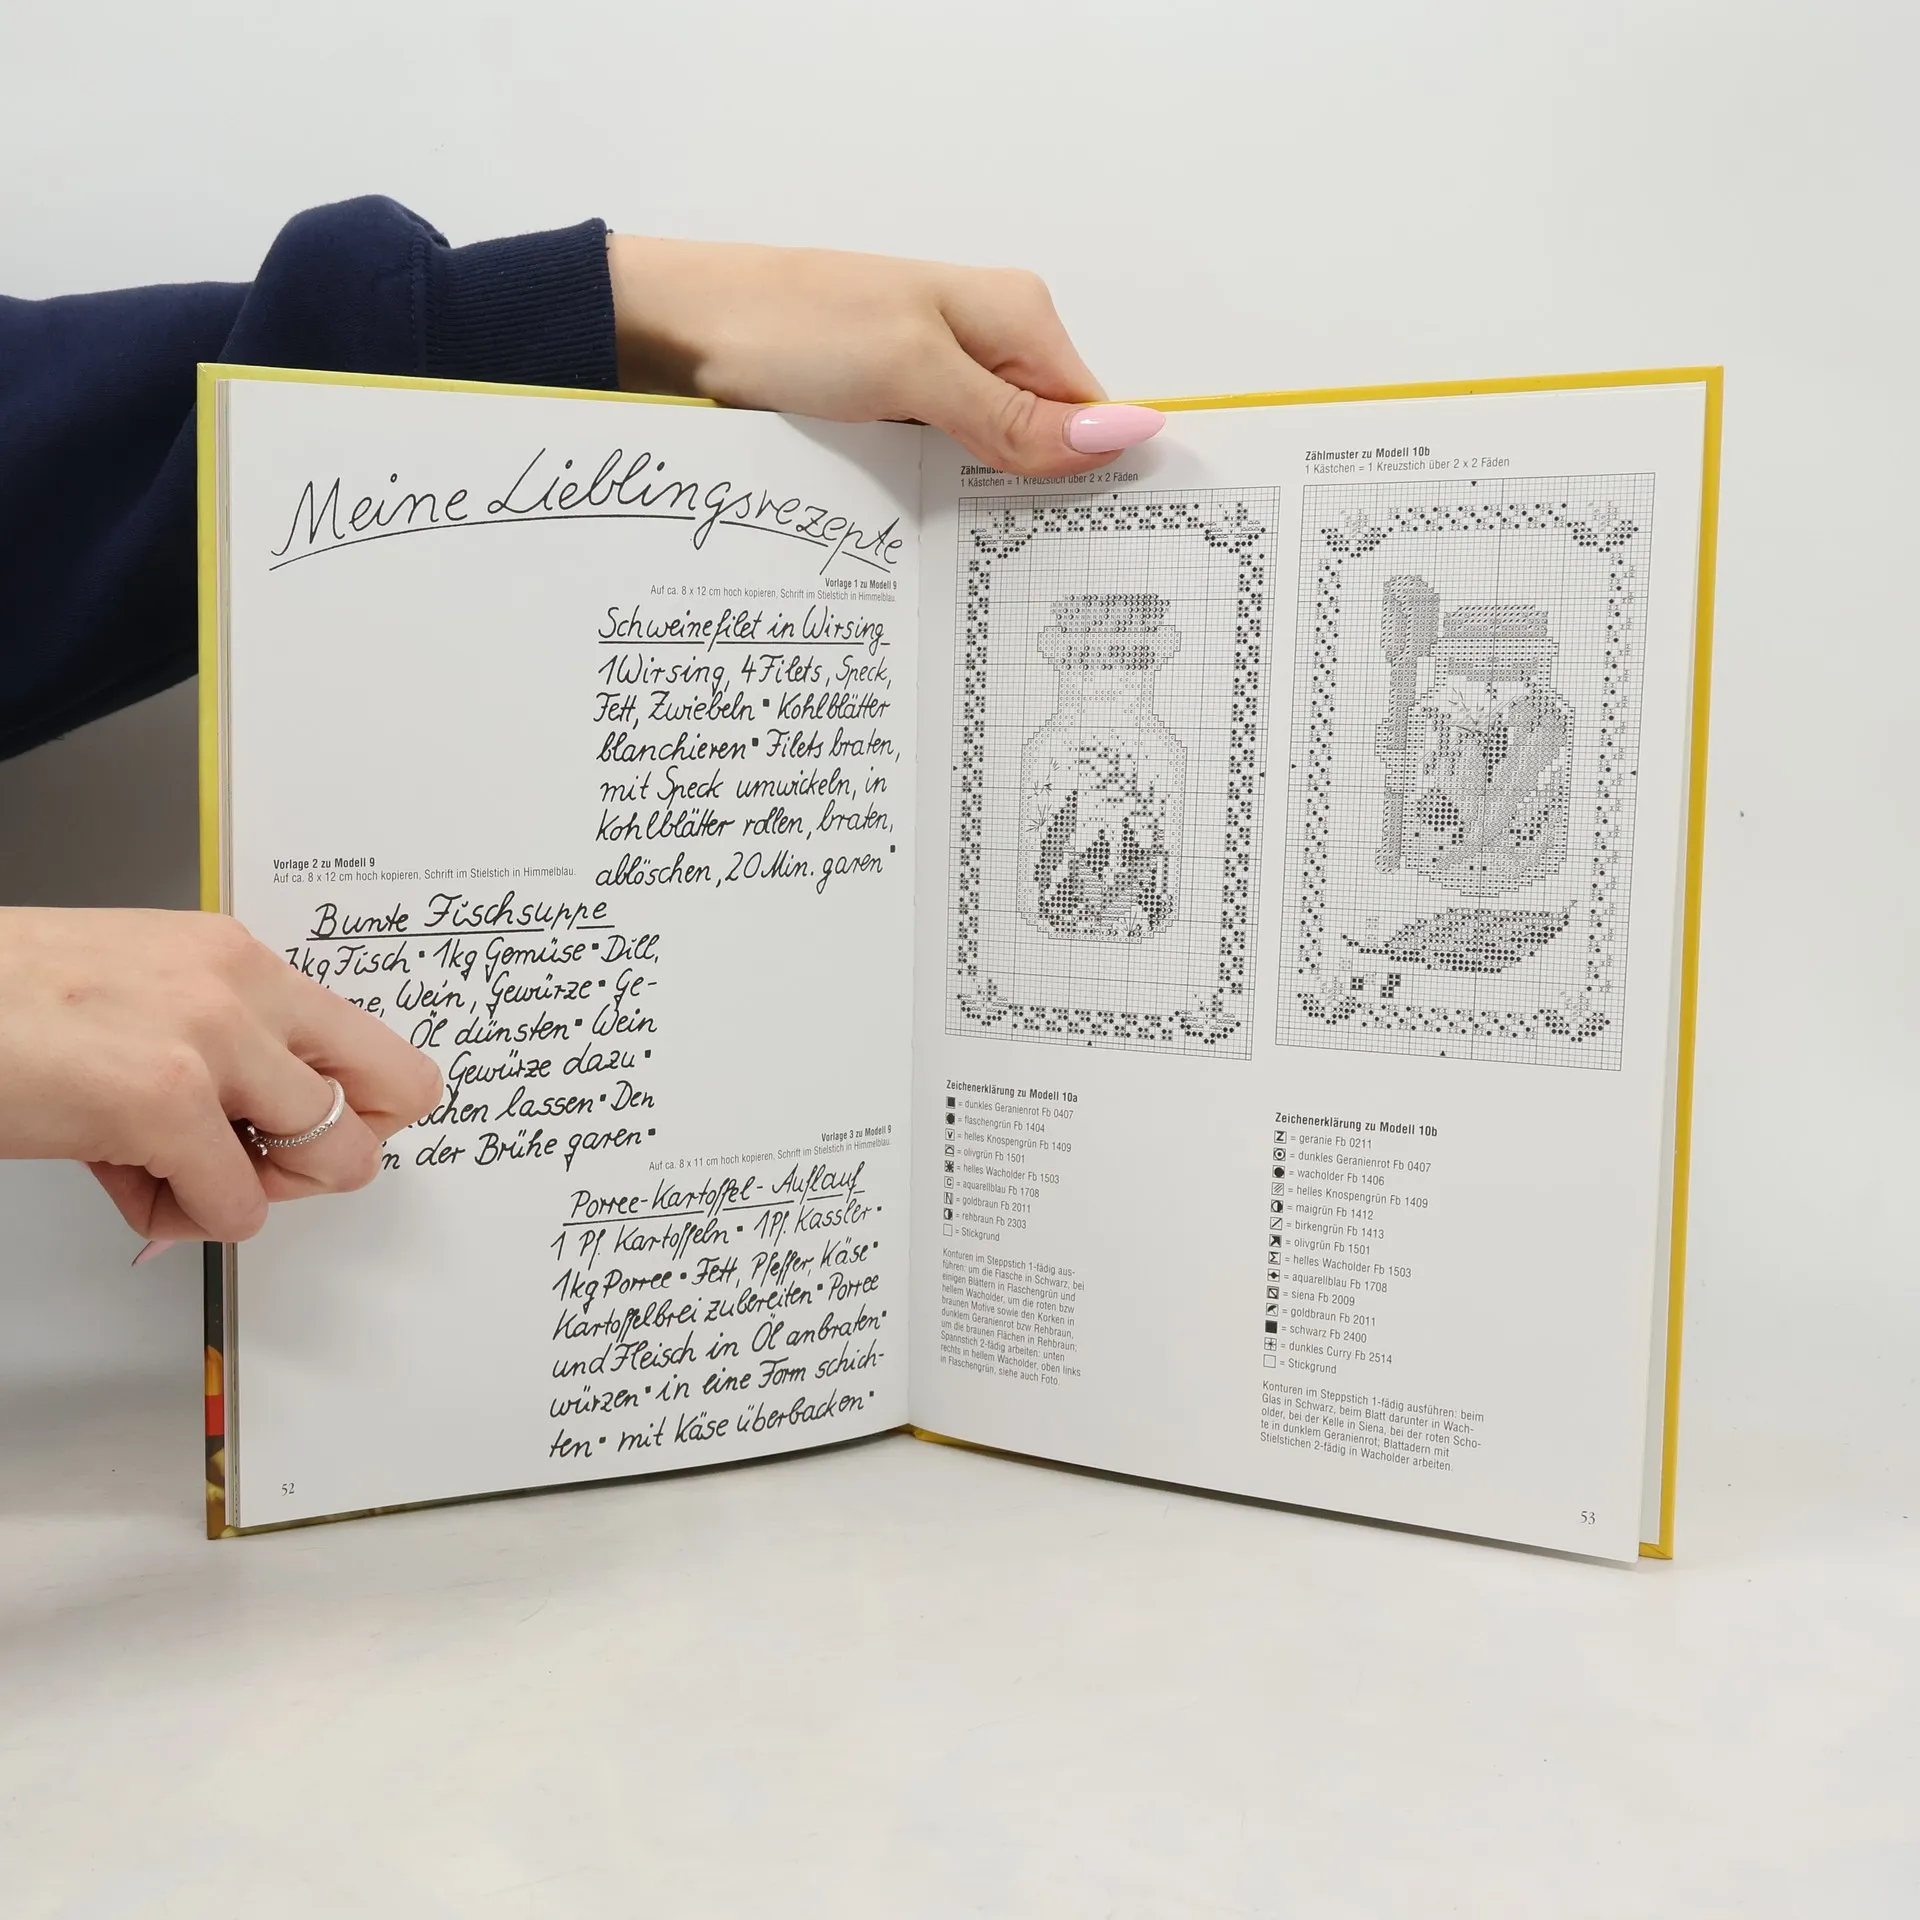 Meine Lieblingsrezepte
Vorlage 1 zu Modell 9
Auf ca. 8 x 12 cm hoch kopieren, Schrift im Stielstich in Himmelblau.
Schweinefilet in Wirsing
1 Wirsing, 4 Filets, Speck,
Fett, Zwiebeln ▪ Kohlblätter
blanchieren ▪ Filets braten,
mit Speck umwickeln, in
Kohlblätter rollen, braten,
ablöschen, 20 Min. garen ▪
Vorlage 2 zu Modell 9
Auf ca. 8 x 12 cm hoch kopieren, Schrift im Stielstich in Himmelblau.
Bunte Fischsuppe
kg Fisch ▪ 1kg Gemüse ▪ Dill,
Wein, Gewürze ▪ Ge-
Öl dünsten ▪ Wein
Gewürze dazu ▪
lassen ▪ Den
der Brühe garen ▪
Vorlage 3 zu Modell 9
Auf ca. 8 x 11 cm hoch kopieren, Schrift im Stielstich in Himmelblau.
Porree-Kartoffel-Auflauf
1 Pf. Kartoffeln ▪ 1 Pf. Kassler ▪
1kg Porree ▪ Fett, Pfeffer, Käse ▪
Kartoffelbrei zubereiten ▪ Porree
und Fleisch in Öl anbraten ▪
würzen ▪ in eine Form schich-
ten ▪ mit Käse überbacken ▪
52
1 Kästchen = 1 Kreuzstich über 2 x 2 Fäden
Zeichenerklärung zu Modell 10a
= dunkles Geranienrot Fb 0407
= flaschengrün Fb 1404
= helles Knospengrün Fb 1409
= olivgrün Fb 1501
= helles Wacholder Fb 1503
= aquarellblau Fb 1708
= goldbraun Fb 2011
= rehbraun Fb 2303
= Stickgrund
Konturen im Steppstich 1-fädig aus-
führen: um die Flasche in Schwarz, bei
einigen Blättern in Flaschengrün und
hellem Wacholder, um die roten bzw
braunen Motive sowie den Korken in
dunklem Geranienrot bzw Rehbraun,
um die braunen Flächen in Rehbraun;
Spannstich 2-fädig arbeiten: unten
rechts in hellem Wacholder, oben links
in Flaschengrün, siehe auch Foto.
Zählmuster zu Modell 10b
1 Kästchen = 1 Kreuzstich über 2 x 2 Fäden
Zeichenerklärung zu Modell 10b
= geranie Fb 0211
= dunkles Geranienrot Fb 0407
= wacholder Fb 1406
= helles Knospengrün Fb 1409
= maigrün Fb 1412
= birkengrün Fb 1413
= olivgrün Fb 1501
= helles Wacholder Fb 1503
= aquarellblau Fb 1708
= siena Fb 2009
= goldbraun Fb 2011
= schwarz Fb 2400
= dunkles Curry Fb 2514
= Stickgrund
Konturen im Steppstich 1-fädig ausführen: beim
Glas in Schwarz, beim Blatt darunter in Wach-
older, bei der Kelle in Siena, bei der roten Scho-
te in dunklem Geranienrot; Blattadern mit
Stielstichen 2-fädig in Wacholder arbeiten.
53